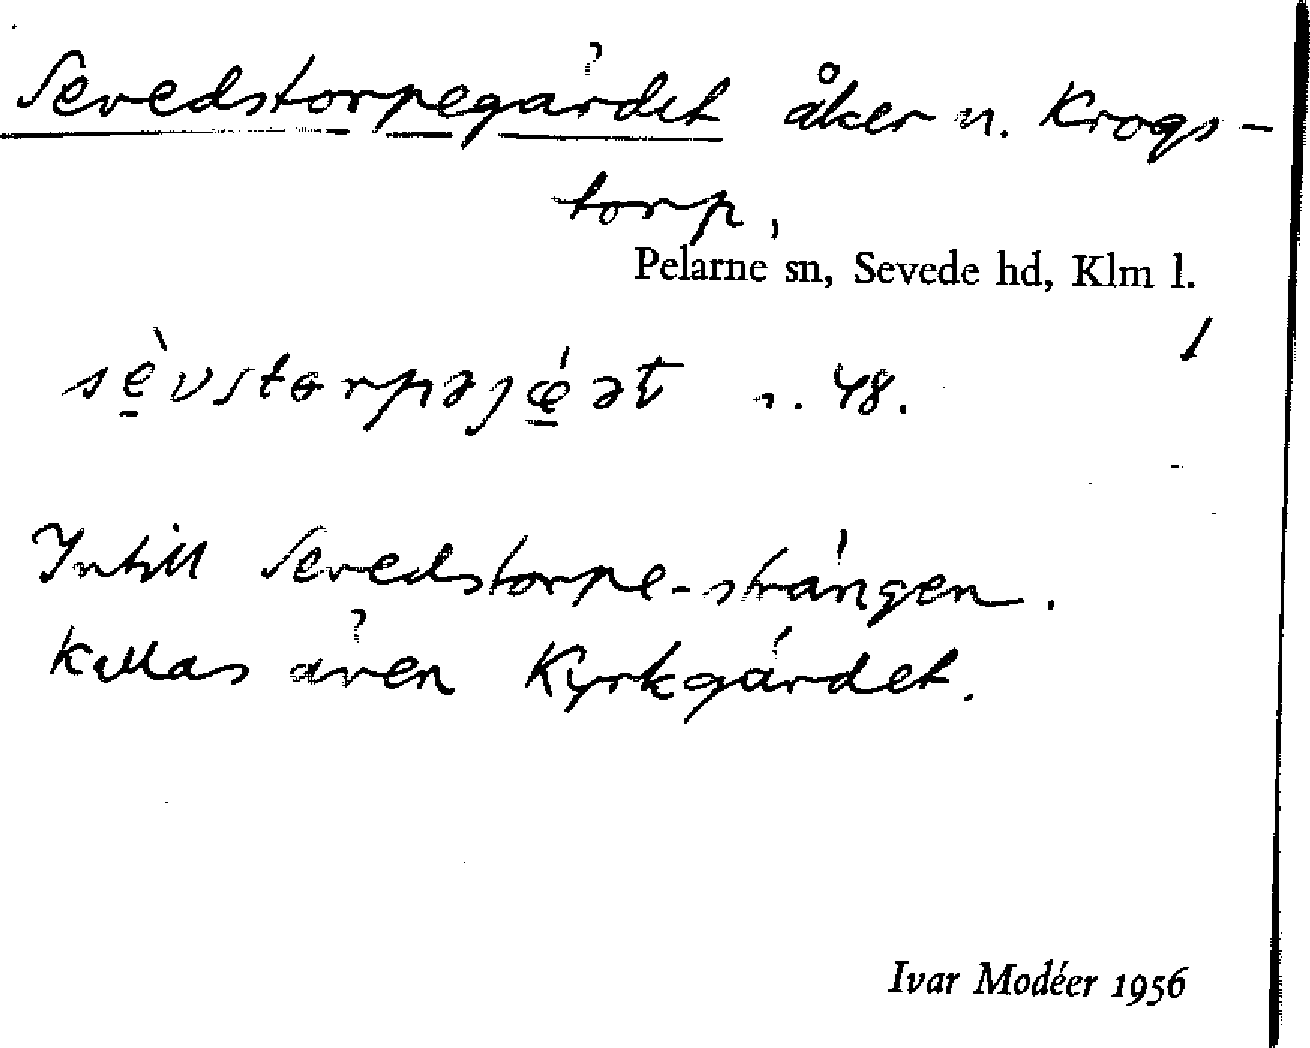 Sevedstorpegärdet åker n. Krogs-
torp,
Pelarne sn, Sevede hd, Klm l.
n. 48.
Intill Sevedstorpe-strängen.
Kallas även Kyrkgärdet.
Ivar Modéer 1956